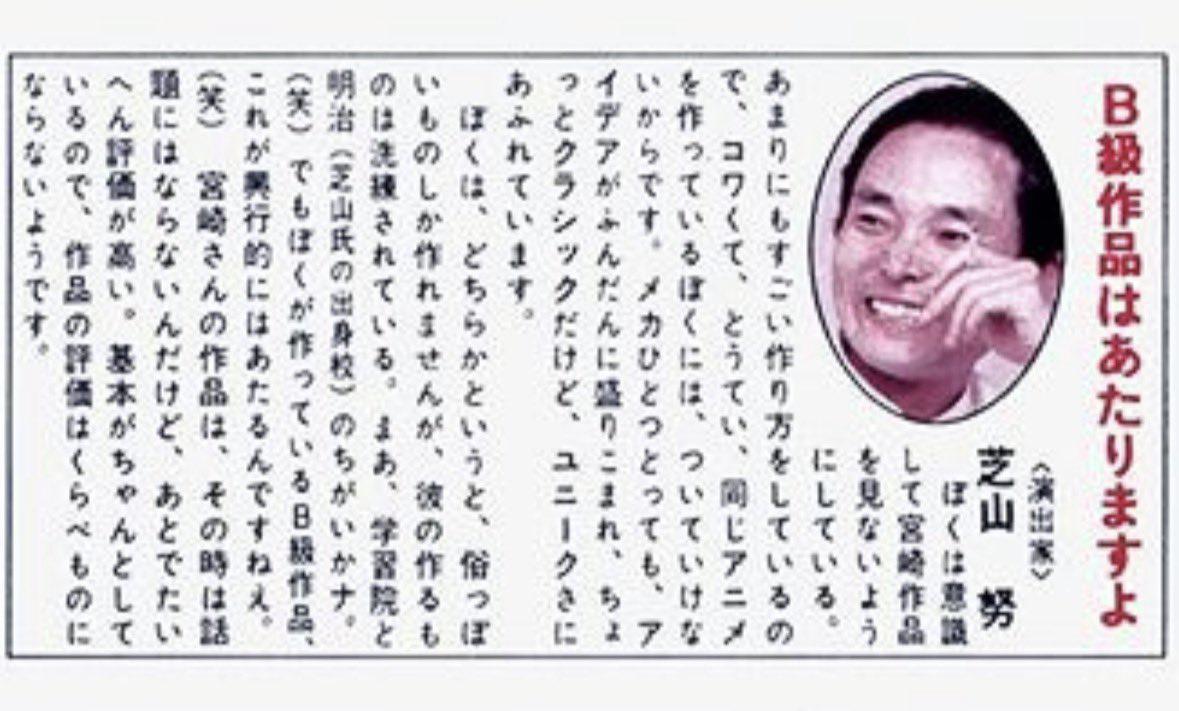 B級作品はあたりますよ
〈演出家〉
芝山　努
　ぼくは意識
して宮崎作品
を見ないよう
にしている。
あまりにもすごい作り方をしているの
で、コワくて、とうてい、同じアニメ
を作っているぼくには、ついていけな
いからです。メカひとつとっても、ア
イデアがふんだんに盛りこまれ、ちょ
っとクラシックだけど、ユニークさに
あふれています。
　ぼくは、どちらかというと、俗っぽ
いものしか作れませんが、彼の作るも
のは洗練されている。まあ、学習院と
明治（芝山氏の出身校）のちがいかナ。
（笑）でもぼくが作っているB級作品、
これが興行的にはあたるんですねえ。
（笑）　宮崎さんの作品は、その時は話
題にはならないんだけど、あとでたい
へん評価が高い。基本がちゃんとして
いるので、作品の評価はくらべものに
ならないようです。